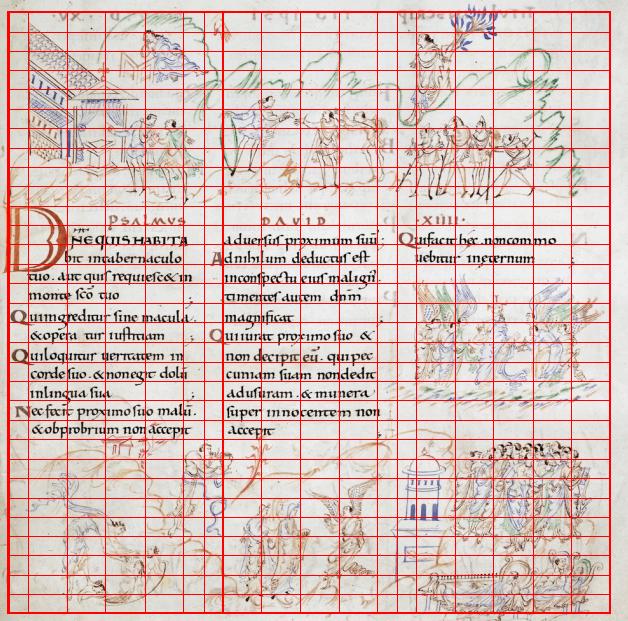 PSALMVS DAVID ·XIIII·
DNE QUIS HABITA
bit intabernaculo
tuo. aut quis requiesc& in
monte sco tuo
Qui ingreditur sine macula.
& opera tur iustitiam
Qui loquitur ueritatem in
corde suo. & non egit dolu
in lingua sua
Nec fecit proximo suo malu.
& obprobrium non accepit
aduersus proximum suu
Ad nihilum deductus est
in conspectu eius malign
timentes autem dnm
magnificat
Qui iurat proximo suo &
non decipit eu. qui pec
cuniam suam non dedit
ad usuram. & munera
super innocentem non
accepit
Qui facit hec. non commo
uebitur in eternum